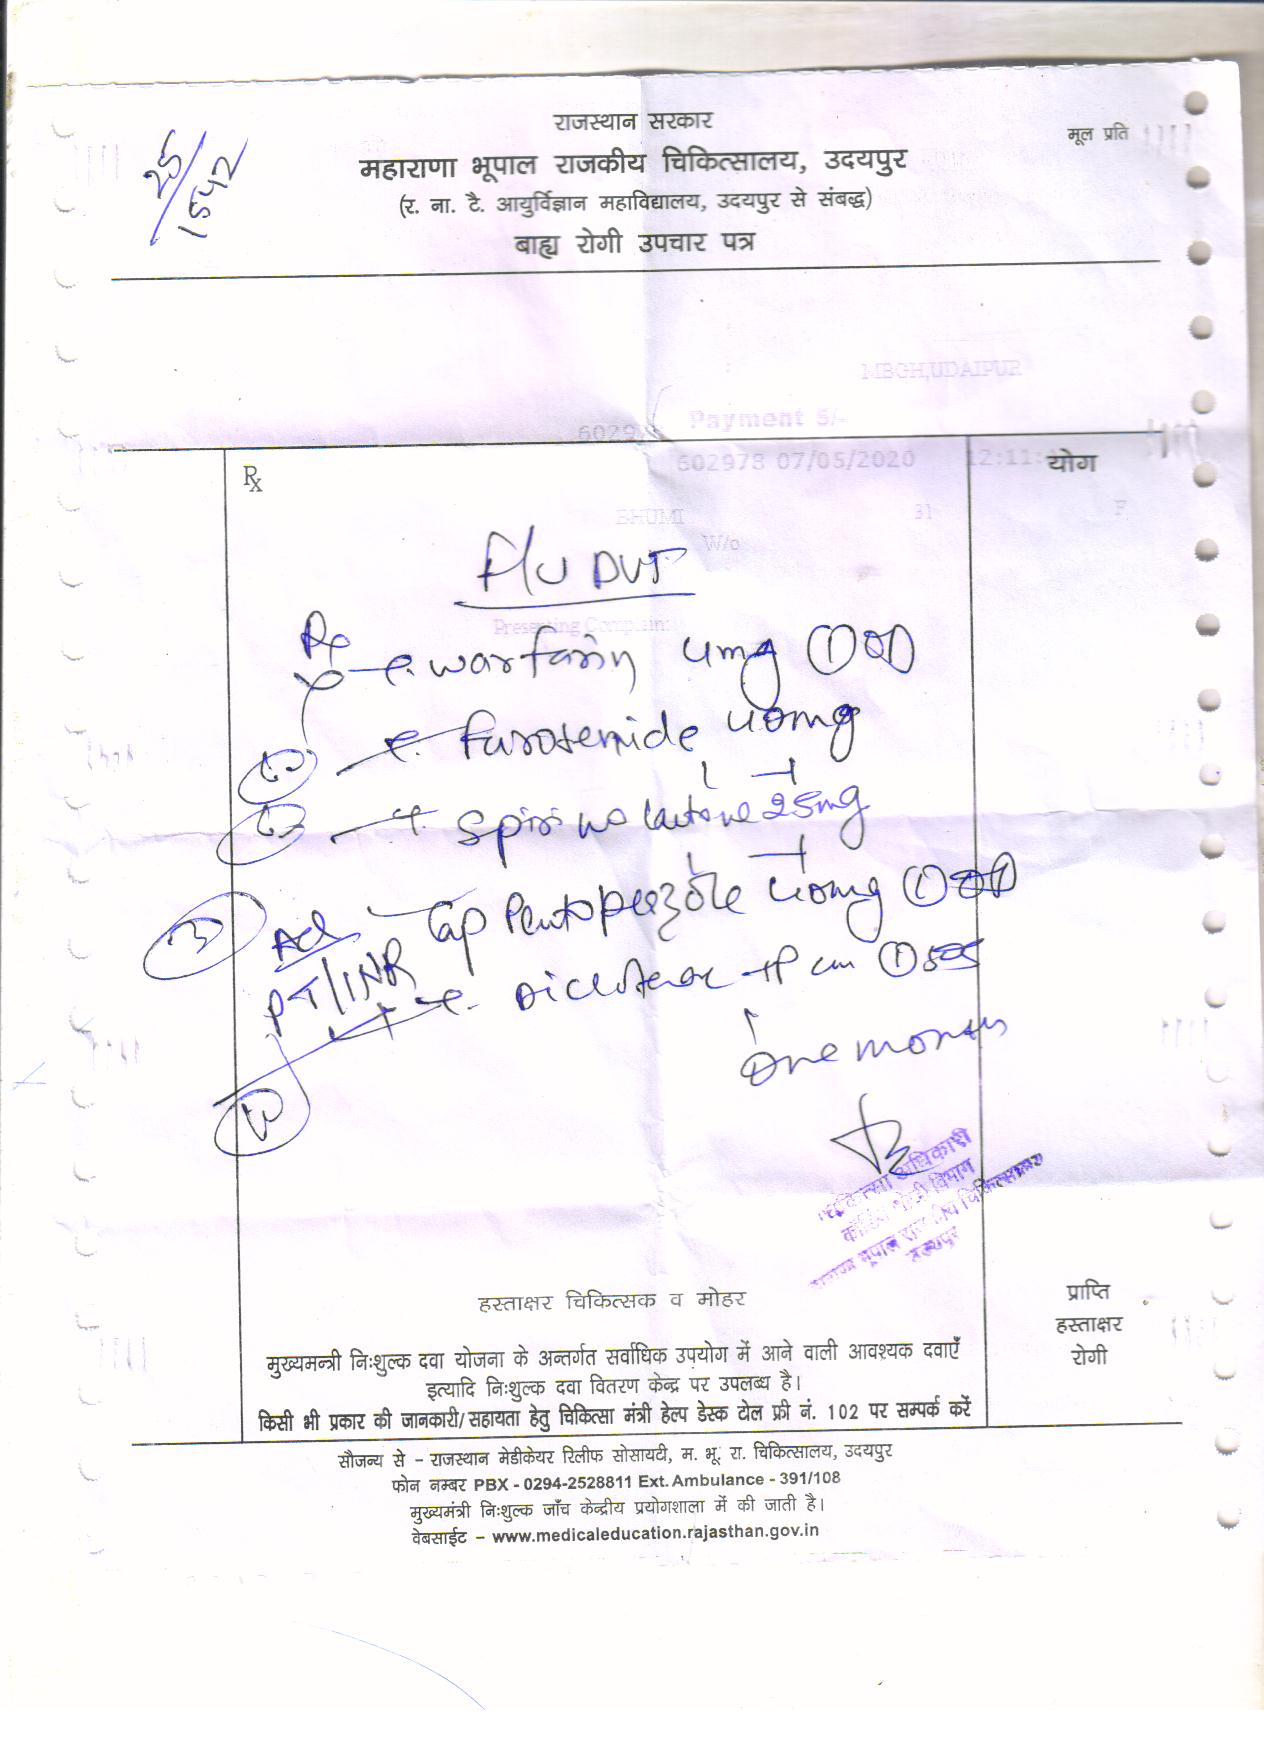 25/1542
राजस्थान सरकार
मूल प्रति
महाराणा भूपाल राजकीय चिकित्सालय, उदयपुर
(र. ना. टै. आयुर्विज्ञान महाविद्यालय, उदयपुर से संबद्ध)
बाह्य रोगी उपचार पत्र
MBGH,UDAIPUR
Payment 5/-
6029
602978 07/05/2020 12:11:
Rx योग
BHUMI 31 F
W/o
F/U DVT
Presenting Complain
Rx
t. warfarin 4mg ① OD
t. furosemide 40mg
t. spironolactone 25mg
Cap Pentoprazole 40mg ① OD
Ad
PT/INR
t. Diclofenac +P ① SOS
one month
चिकित्सा अधिकारी
विभाग
भूपाल राजकीय चिकित्सालय
उदयपुर
हस्ताक्षर चिकित्सक व मोहर
प्राप्ति
हस्ताक्षर
रोगी
मुख्यमन्त्री निःशुल्क दवा योजना के अन्तर्गत सर्वाधिक उपयोग में आने वाली आवश्यक दवाएँ
इत्यादि निःशुल्क दवा वितरण केन्द्र पर उपलब्ध है।
किसी भी प्रकार की जानकारी/सहायता हेतु चिकित्सा मंत्री हेल्प डेस्क टोल फ्री नं. 102 पर सम्पर्क करें
सौजन्य से – राजस्थान मेडीकेयर रिलीफ सोसायटी, म. भू. रा. चिकित्सालय, उदयपुर
फोन नम्बर PBX - 0294-2528811 Ext. Ambulance - 391/108
मुख्यमंत्री निःशुल्क जाँच केन्द्रीय प्रयोगशाला में की जाती है।
वेबसाईट – www.medicaleducation.rajasthan.gov.in